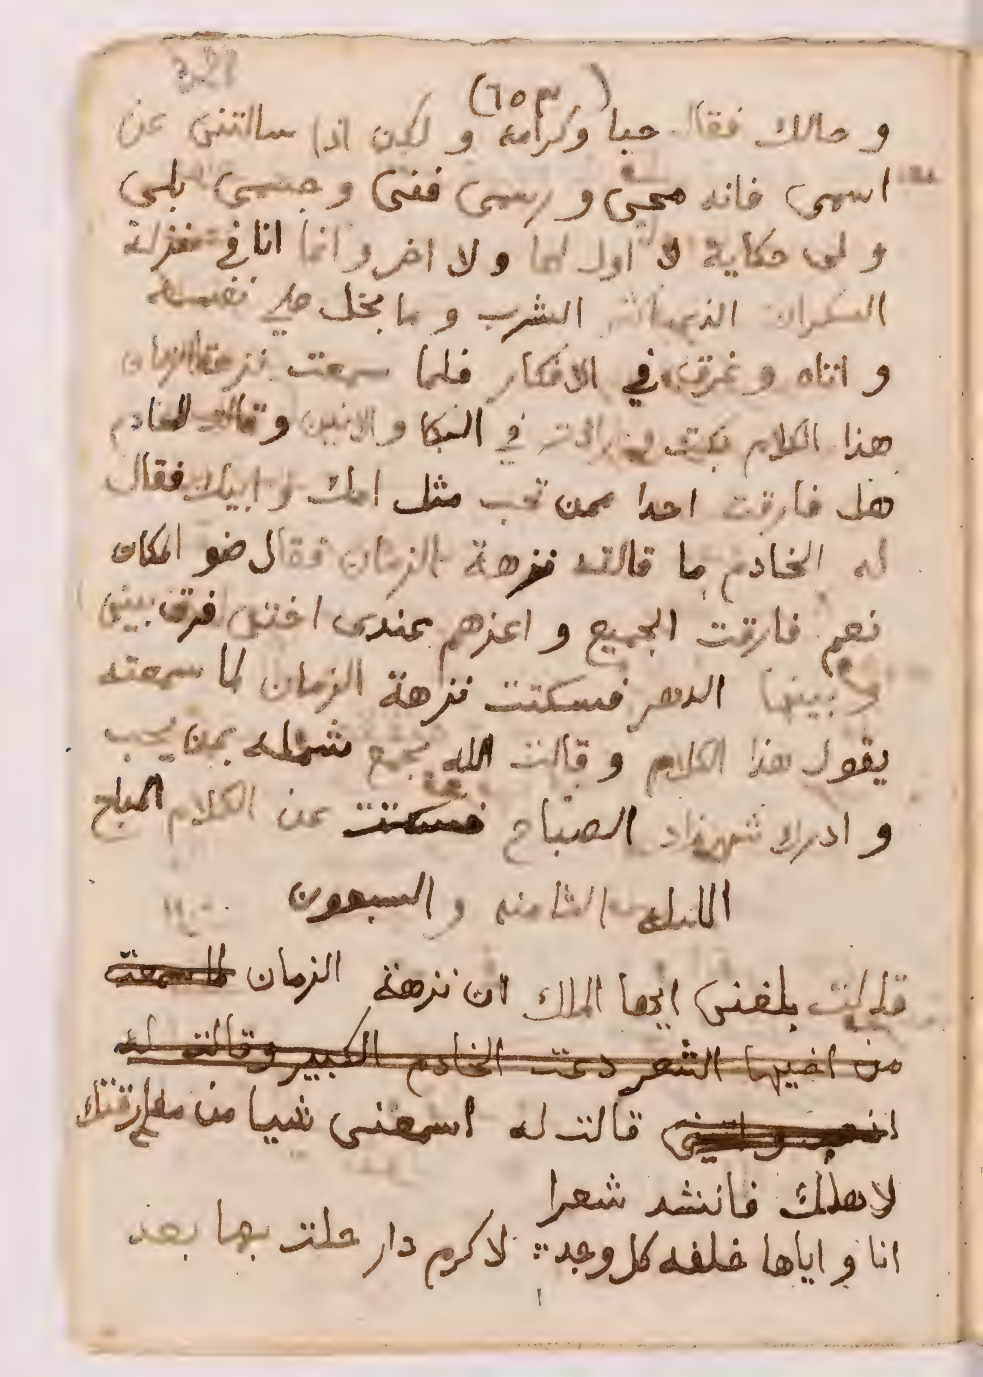 321
(٦٥٣)
و حالك فقال حبا وكرامه و لكن اذا سالتنى عن
اسمى فانه محى و رسمى ففنى و جسمى بلى
و لى حكاية لا اول لها ولا اخر وانما انا فى منزلة
السكران الذى اكثر الشرب و ما بخل على نفسه
و اتاه و غرق في الافكار فلما سمعت نزهة الزمان
هذا الكلام بكت و زادت في البكا و الانين و قالت للخادم
هل فارقت احدا ممن تحب مثل امك و ابيك فقال
له الخادم ما قالته نزهة الزمان فقال ضو المكان
نعم فارقت الجميع و اعزهم عندى اختى فرق بينى
و بينها الدهر فسكتت نزهة الزمان لما سمعته
يقول هذا الكلام و قالت الله يجمع شمله بمن يحب
و ادرك شهرزاد الصباح فسكتت عن الكلام المباح
الليله الثامنه و السبعون
قالت بلغنى ايها الملك ان نزهة الزمان لما سمعت
من اخيها الشعر دعت الخادم الكبير و قالت له
قالت له اسمعنى شيا من مفارقتك
لاهلك فانشد شعرا
انا و اياها خلفه كل وجد :: لاكرم دار حلت بها بعد